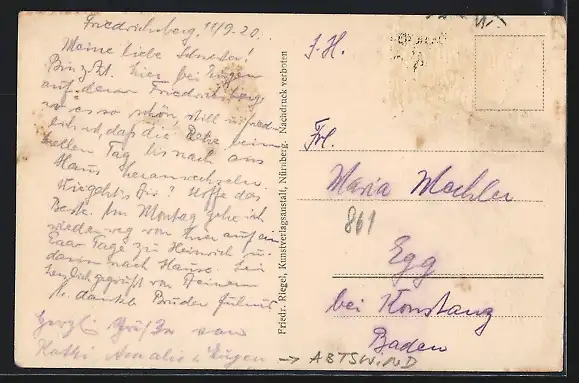 Friedrichsberg, 11/9.20.
Meine liebe Schwester!
Bin z. Zt. hier bei Eugen
auf deren Friedrichsberg,
wo es so schön, still u. fried-
lich ist, daß die Rehe beim
hellen Tag bis nach ans
Haus heranwechseln.
Wie geht's Dir? Hoffe das
Beste. Am Montag gehe ich
wieder weg von hier auf ein
Paar Tage zu Heinrich u.
dann nach Hause. Sei
herzlich gegrüßt von Deinem
l. dankb. Bruder Julius
Herzl. Grüße von
Kathi Amalie u Eugen
Friedr. Riegel, Kunstverlagsanstalt, Nürnberg. Nachdruck verboten
I. H.
Frl.
Maria Mechler
861
Egg
bei Konstanz
Baden
→ ABTSWIND